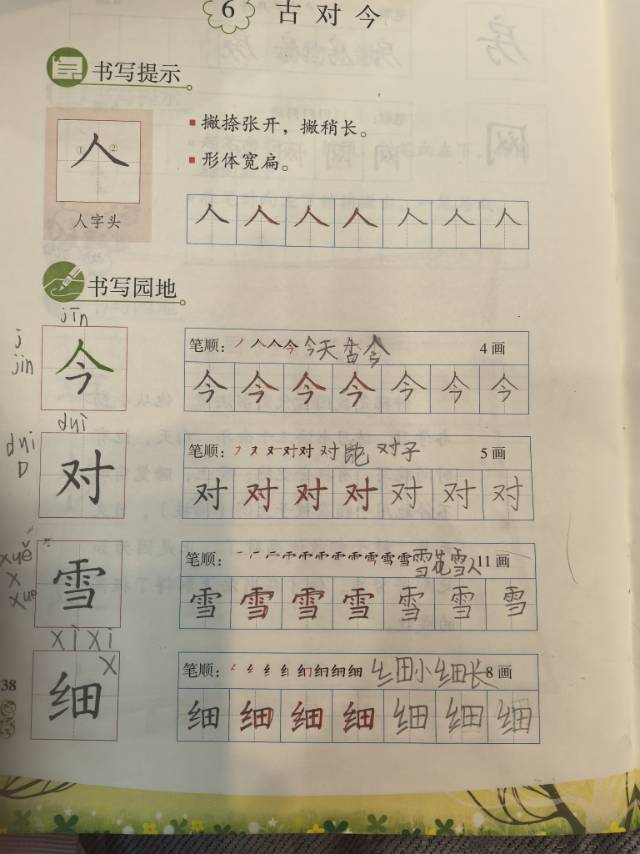 6 古对今
书写提示
人
① ②
人字头
撇捺张开，撇稍长。
形体宽扁。
人 人 人 人 人 人 人
书写园地
jīn
j
jin
今
笔顺： 今天 4 画
今 今 今 今 今 今 今
duì
dui
D
对
笔顺： 对 对子 5 画
对 对 对 对 对 对 对
xuě
x
xue
雪
笔顺： 雪花雪人 11 画
雪 雪 雪 雪 雪 雪 雪
xì xì
x
细
笔顺： 细小细长 8 画
细 细 细 细 细 细 细
38